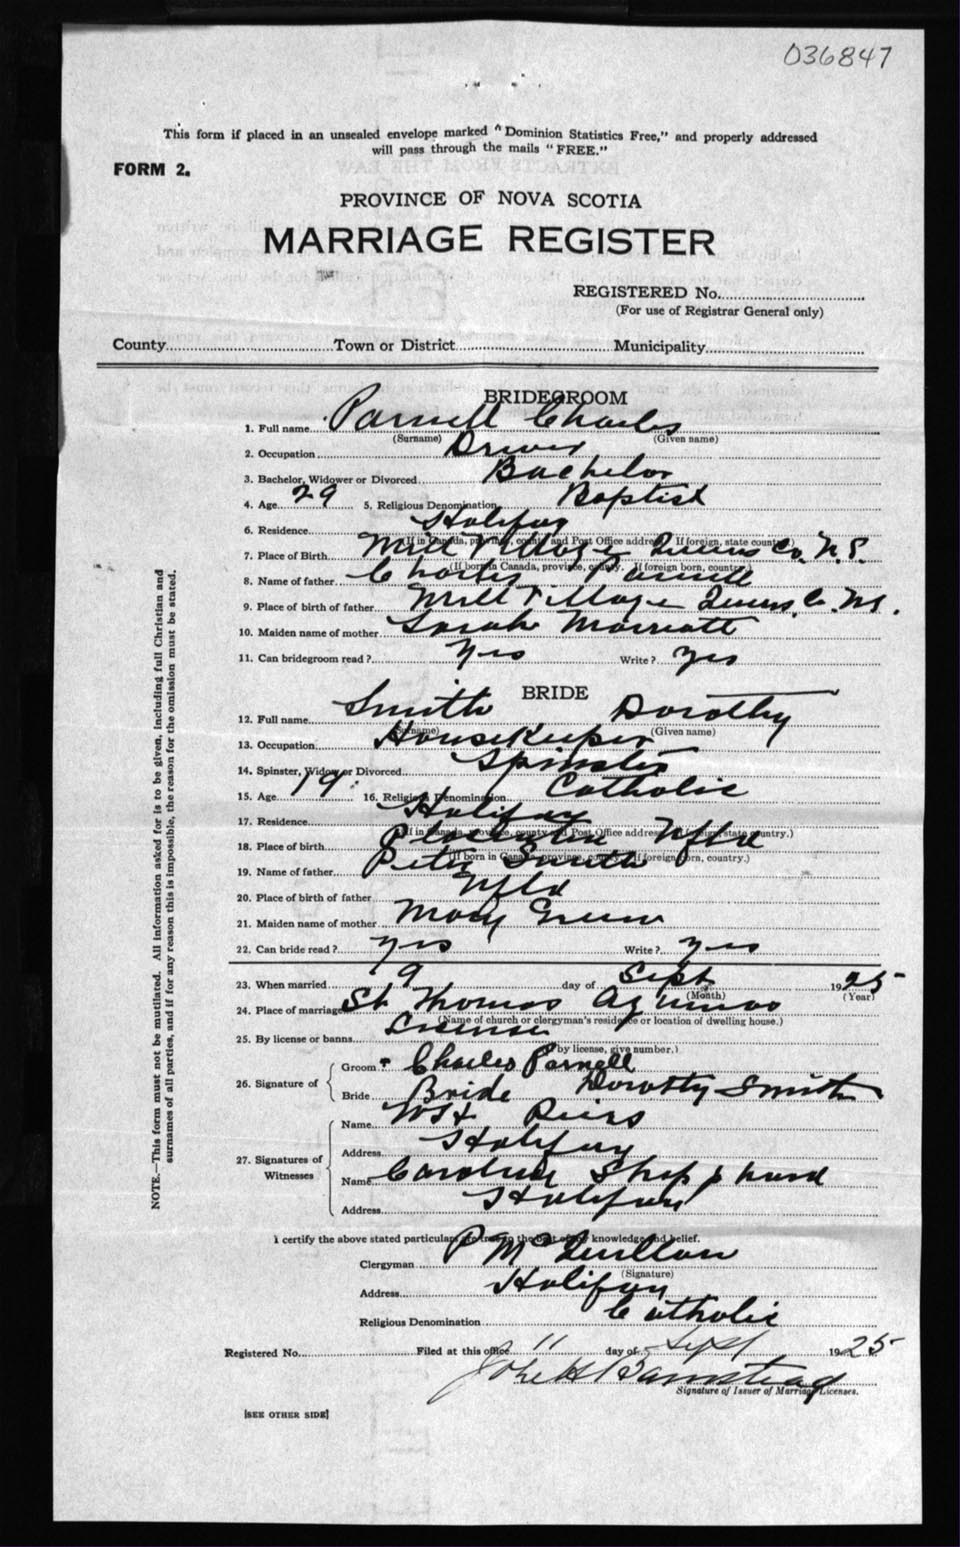 036847
This form if placed in an unsealed envelope marked "Dominion Statistics Free," and properly addressed
will pass through the mails "FREE."
FORM 2.
PROVINCE OF NOVA SCOTIA
MARRIAGE REGISTER
REGISTERED No.
(For use of Registrar General only)
County Town or District Municipality
BRIDEGROOM
1. Full name Parnell Charles
(Surname) (Given name)
2. Occupation Driver
3. Bachelor, Widower or Divorced Bachelor
4. Age 29 5. Religious Denomination Baptist
6. Residence Halifax
(If in Canada, province, county and Post Office address. If foreign, state country.)
7. Place of Birth Mill Village Queens Co. N.S.
(If born in Canada, province, county. If foreign born, country.)
8. Name of father Charles Parnell
9. Place of birth of father Mill Village Queens Co. N.S.
10. Maiden name of mother Sarah Marriott
11. Can bridegroom read? Yes Write? Yes
BRIDE
12. Full name Smith Dorothy
(Surname) (Given name)
13. Occupation Housekeeper
14. Spinster, Widow or Divorced Spinster
15. Age 19 16. Religious Denomination Catholic
17. Residence Halifax
(If in Canada, province, county and Post Office address. If foreign, state country.)
18. Place of birth Placentia Nfld
(If born in Canada, province, county. If foreign born, country.)
19. Name of father Peter Smith
20. Place of birth of father Nfld
21. Maiden name of mother Mary Green
22. Can bride read? Yes Write? Yes
23. When married 9 day of Sept 1925
(Month) (Year)
24. Place of marriage St Thomas Aquinas
(Name of church or clergyman's residence or location of dwelling house.)
25. By license or banns License
(If by license, give number.)
26. Signature of Groom Charles Parnell
Bride Bride Dorothy Smith
27. Signatures of Witnesses Name Piers
Address Halifax
Name Caroline Sheppard
Address Halifax
I certify the above stated particulars are true to the best of my knowledge and belief.
Clergyman P McQuillan
(Signature)
Address Halifax
Religious Denomination Catholic
Registered No. Filed at this office 11 day of Sept 1925
Signature of Issuer of Marriage Licenses.
[SEE OTHER SIDE]
NOTE.—This form must not be mutilated. All information asked for is to be given, including full Christian and
surnames of all parties, and if for any reason this is impossible, the reason for the omission must be stated.